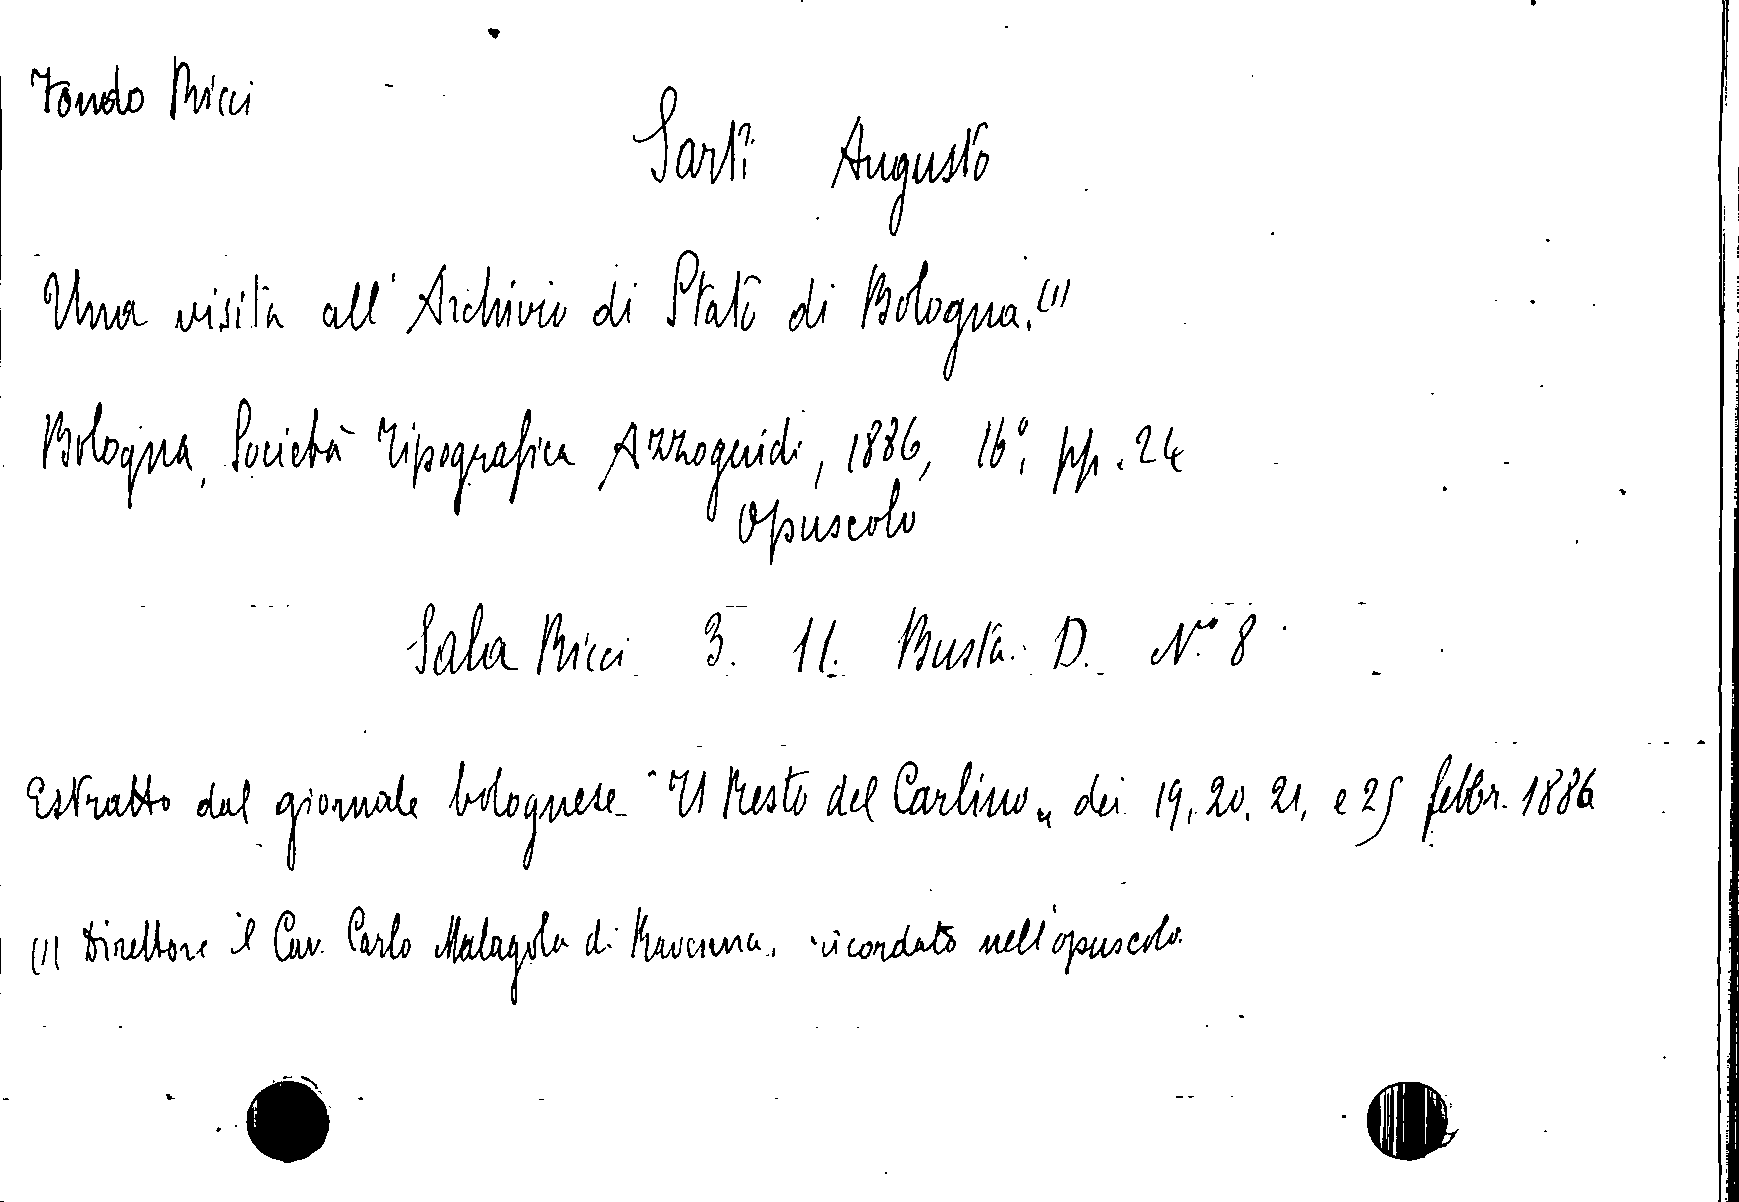 Fondo Ricci
Sarti Augusto
Una visita all'Archivio di Stato di Bologna.(1)
Bologna, Società Tipografica Azzoguidi, 1886, 16°, pp. 24
Opuscolo
Sala Ricci 3. 11. Busta D. N.° 8
Estratto dal giornale bolognese "Il Resto del Carlino„ dei 19, 20, 21, e 25 febbr. 1886
(1) Direttore il Cav. Carlo Malagola di Ravenna, ricordato nell'opuscolo.